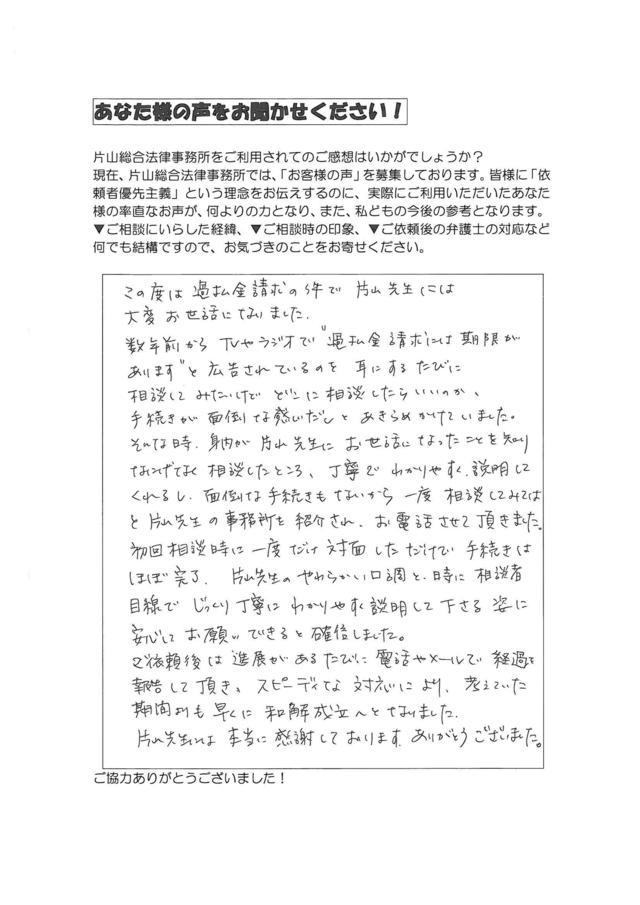 あなた様の声をお聞かせください！
片山総合法律事務所をご利用されてのご感想はいかがでしょうか？
現在、片山総合法律事務所では、「お客様の声」を募集しております。皆様に「依
頼者優先主義」という理念をお伝えするのに、実際にご利用いただいたあなた
様の率直なお声が、何よりの力となり、また、私どもの今後の参考となります。
▼ご相談にいらした経緯、▼ご相談時の印象、▼ご依頼後の弁護士の対応など
何でも結構ですので、お気づきのことをお寄せください。
この度は過払金請求の件で 片山先生には
大変お世話になりました.
数年前からTVやラジオで"過払金請求には期限が
あります"と広告されているのを 耳にするたびに
相談してみたいけど どこに相談したらいいのか、
手続きが面倒な感いだしと あきらめかけていました。
そんな時、身内が片山先生に お世話になったことを知り
なにげなく相談したところ、丁寧で わかりやすく説明して
くれるし、面倒な手続きもないから一度 相談してみては
と片山先生の事務所を紹介され、お電話させて頂きました。
初回相談時に一度だけ対面しただけで手続きは
ほぼ完了. 片山先生のやわらかい口調と、時に相談者
目線で じっくり丁寧に わかりやすく説明して下さる姿に
安心して お願いできると確信しました。
ご依頼後は進展があるたびに電話やメールで経過を
報告して頂き、スピーディな対応により、考えていた
期間よりも早くに和解成立へとなりました.
片山先生には本当に感謝しております. ありがとうございました。
ご協力ありがとうございました！